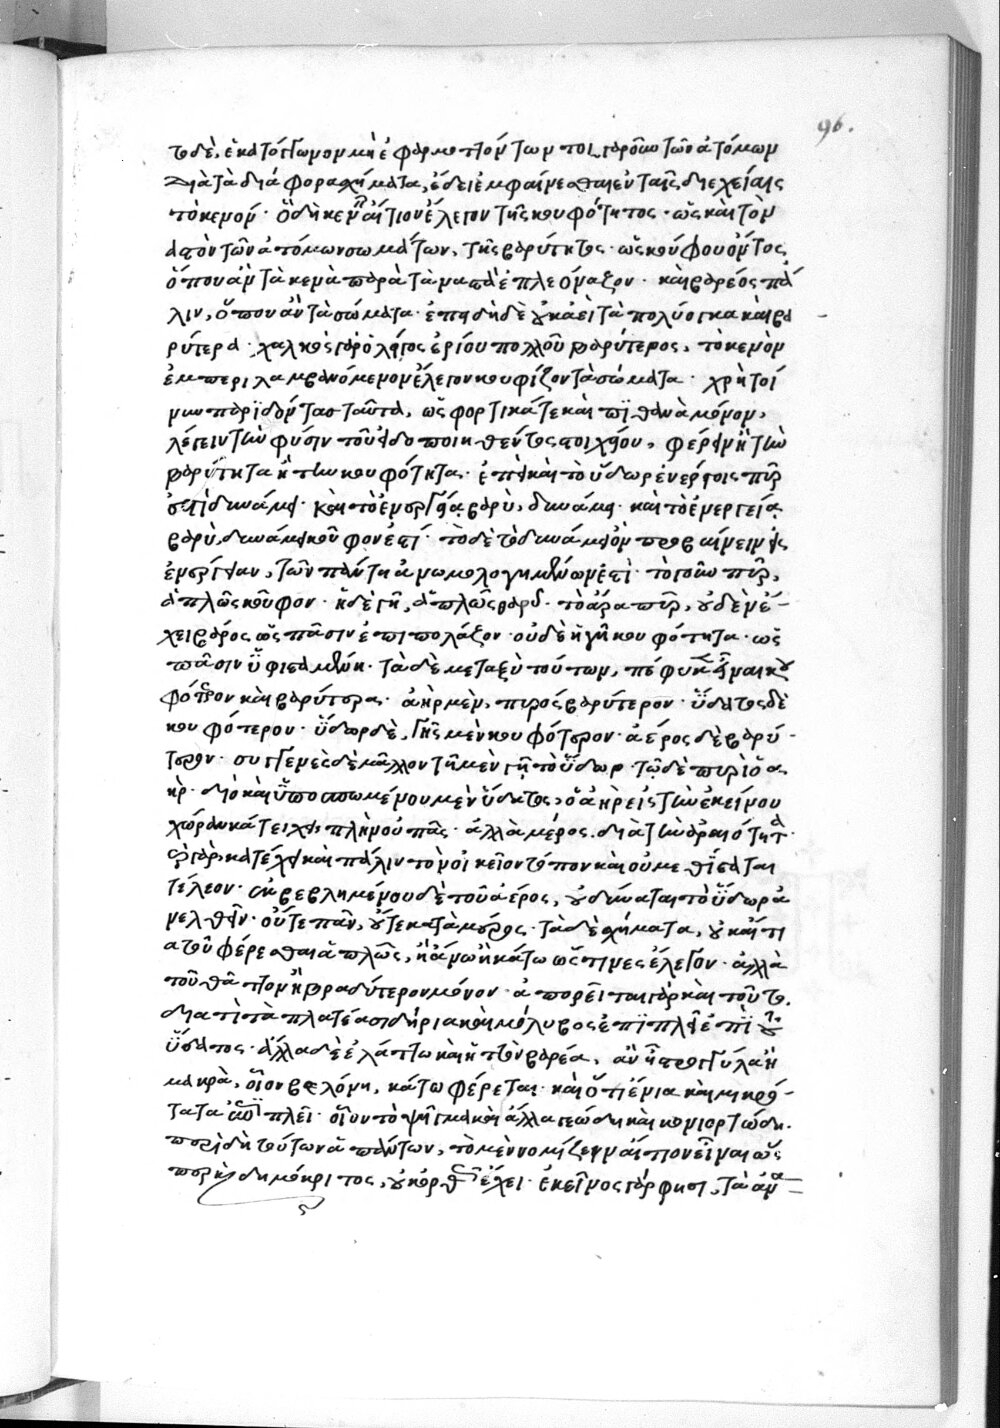 τὸ δὲ, ἑκατὸν γωνον μὴ ἐφαρμοττόντων τοιγαροῦν τῶν ἀτόμων
διὰ τὰ διάφορα σχήματα, ἔδει ἐμφαίνεσθαι ἐν ταῖς διεχείαις
τὸ κενόν. ὃ δὴ κενὸν αἴτιον ἔλεγον τῆς κουφότητος. ὡς καὶ τὸν
ναστὸν τῶν ἀτόμων σωμάτων, τῆς βαρύτητος. ὡς κούφου ὄντος,
ὅπου ἂν τὰ κενὰ παρὰ τὰ ναστὰ ἐπλεόναζον. καὶ βαρέος πά
λιν, ὅπου ἂν τὰ σώματα. ἐπειδὴ δὲ οὐκ ἀεὶ τὰ πολύογκα καὶ βα
ρύτερα. χαλκὸς γὰρ ὀλίγος ἐρίου πολλοῦ βαρύτερος, τὸ κενὸν
ἐμπεριλαμβανόμενον ἔλεγον κουφίζον τὰ σώματα. χρὴ τοί
νυν παριδόντας ταῦτα, ὡς φορτικά τε καὶ πϊθανὰ μόνον,
λέγειν τὴν φύσιν τοῦ εἰδοποιηθέντος στοιχείου, φέρειν ἢ τὴν
βαρύτητα ἢ τὴν κουφότητα. ἐπεὶ καὶ τὸ ὕδωρ ἐνεργείᾳ πῦρ
ἐστὶ δυνάμει. καὶ τὸ ἐνεργείᾳ βαρὺ, δυνάμει. καὶ τὸ ἐνεργείᾳ
βαρὺ, δυνάμει κοῦφον ἐστί. τὸ δὲ τὸ δυνάμει ὂν προβαίνειν εἰς
ἐνέργειαν, τῶν πάντη ἀνωμολογημένων ἐστί. τὸ γοῦν πῦρ,
ἁπλῶς κοῦφον. ἡ δὲ γῆ, ἁπλῶς βαρύ. τὸ ἄρα πῦρ, οὐδὲν ἔ-
χει βάρος, ὡς πᾶσιν ἐπιπολάζον. οὐδὲ ἡ γῆ κουφότητα. ὡς
πᾶσιν ὑφισταμένη. τὰ δὲ μεταξὺ τούτων, πέφυκεν εἶναι κου
φότερον καὶ βαρύτερα. ἀὴρ μὲν, πυρὸς βαρύτερον. ὕδατος δὲ
κουφότερον. ὕδωρ δὲ, γῆς μὲν κουφότερον. ἀέρος δὲ βαρύ-
τερον. συγγενὲς δὲ μᾶλλον τῇ μὲν γῇ τὸ ὕδωρ. τῷ δὲ πυρὶ ὁ ἀ
ὴρ. διὸ καὶ ὑποσπωμένου μὲν ὕδατος, ὁ ἀὴρ εἰς τὴν ἐκείνου
χώραν κάτεισι, πλὴν οὐ πᾶς. ἀλλὰ μέρος. διὰ τὴν ἀραιότητα.
γὰρ, κατέχει καὶ πάλιν τὸν οἰκεῖον τόπον καὶ οὐ μεθίσταται
τέλεον. ἐκβεβλημένου δὲ τοῦ ἀέρος, οὐ δύναται τὸ ὕδωρ ἀ
νελθεῖν. οὔτε πᾶν, οὔτε κατὰ μέρος. τὰ δὲ σχήματα, οὐκ αἴτι
α τοῦ φέρεσθαι ἁπλῶς, ἢ ἄνω ἢ κάτω ὥς τινες ἔλεγον. ἀλλὰ
τοῦ θᾶττον ἢ βραδύτερον μόνον. ἀπορεῖται γὰρ καὶ τοῦτο.
διατί τὰ πλατέα σιδήρια καὶ μόλυβος ἐπιπλεῖ ἐπὶ τοῦ
ὕδατος. ἄλλα δὲ ἐλάττω καὶ ἧττον βαρέα, ἂν ᾖ στρογγύλα ἢ
μακρὰ, οἷον βελόνη, κάτω φέρεται. καὶ ὅτι ἔνια καὶ μικρό-
τατα ἐπιπλεῖ. οἷον τὸ ψῆγμα καὶ ἄλλα γεώδη καὶ κονιορτώδη.
περὶ δὴ τούτων ἁπάντων, τὸ μὲν νομίζειν αἴτιον εἶναι ὡς
περ ὁ δημόκριτος, οὐκ ὀρθῶς ἔχει. ἐκεῖνος γάρ φησι, τὰ ἄνω